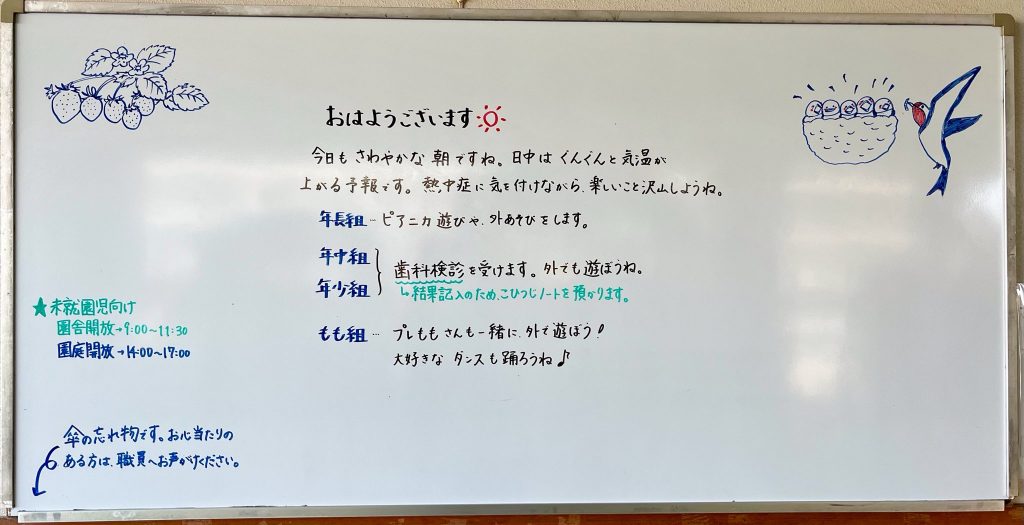 おはようございます
今日も さわやかな 朝ですね。日中は ぐんぐんと気温が
上がる予報です。熱中症に気を付けながら、楽しいこと沢山しようね。
年長組…ピアニカ遊びや、外あそびをします。
年中組
年少組
歯科検診を受けます。外でも遊ぼうね。
↳結果記入のため、こひつじノートを預かります。
もも組… プレももさんも一緒に、外で遊ぼう!
大好きな ダンスも踊ろうね♪
★未就園児向け
園舎開放→9:00～11:30
園庭開放→14:00～17:00
傘の忘れ物です。お心当たりの
ある方は、職員へお声がけください。